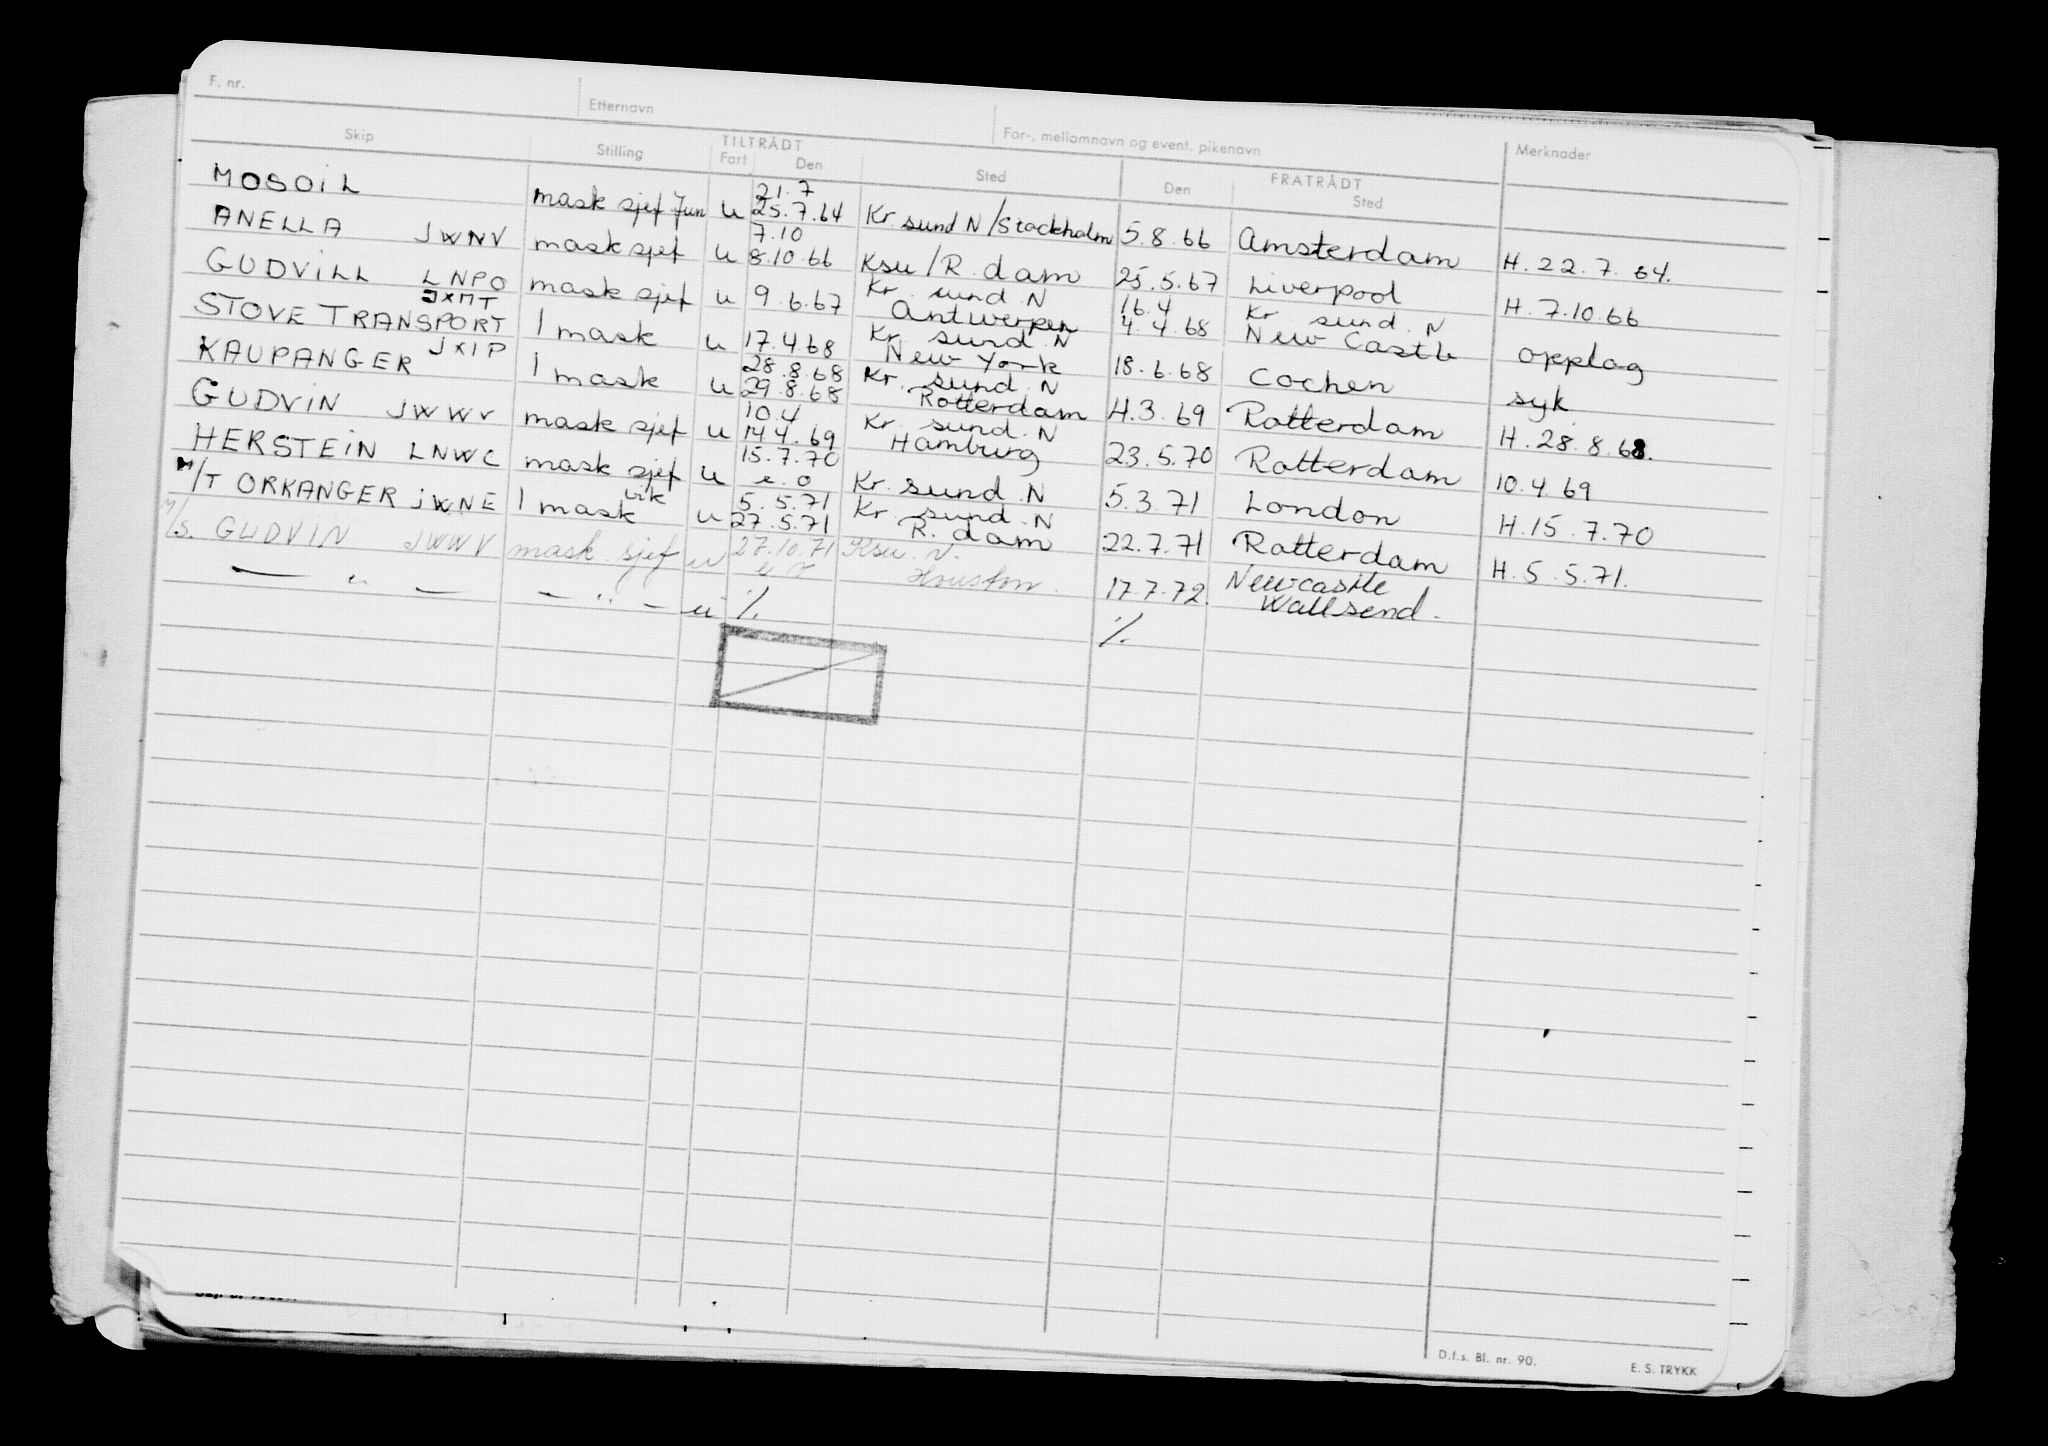 F. nr. Etternavn For-, mellomnavn og event. pikenavn
Skip Stilling TILTRÅDT Fart Den Sted FRATRÅDT Den Sted Merknader
MOSOIL mask sjef Jun u 21.7 25.7.64 Kr sund N/Stockholm 5.8.66 Amsterdam H.22.7.64.
ANELLA JWNV mask sjef u 7.10 8.10.66 Ksu/R.dam 25.5.67 Liverpool H.7.10.66
GUDVILL LNPO mask sjef u 9.6.67 Kr. sund.N Antwerpen 16.4 4.4.68 Kr sund.N New Castle opplag
STOVE TRANSPORT JXMT 1 mask u 17.4.68 Kr sund.N New York 18.6.68 Cochen syk
KAUPANGER JXIP 1 mask u 28.8.68 29.8.68 Kr. sund.N Rotterdam 4.3.69 Rotterdam H.28.8.68.
GUDVIN JWWV mask sjef u 10.4 14.4.69 Kr. sund.N Hamburg 23.5.70 Rotterdam 10.4.69
HERSTEIN LNWC mask sjef u 15.7.70 e.o Kr.sund.N 5.3.71 London H.15.7.70
M/T ORKANGER JWNE 1 mask vik u 5.5.71 27.5.71 Kr. sund.N R.dam 22.7.71 Rotterdam H.5.5.71.
M/S. GUDVIN JWWV mask. sjef u 27.10.71 Ksu.N. Houston. 17.7.72. Newcastle Wallsend.
— " — — " — u % %
D.f.s. Bl. nr. 90. E. S. TRYKK